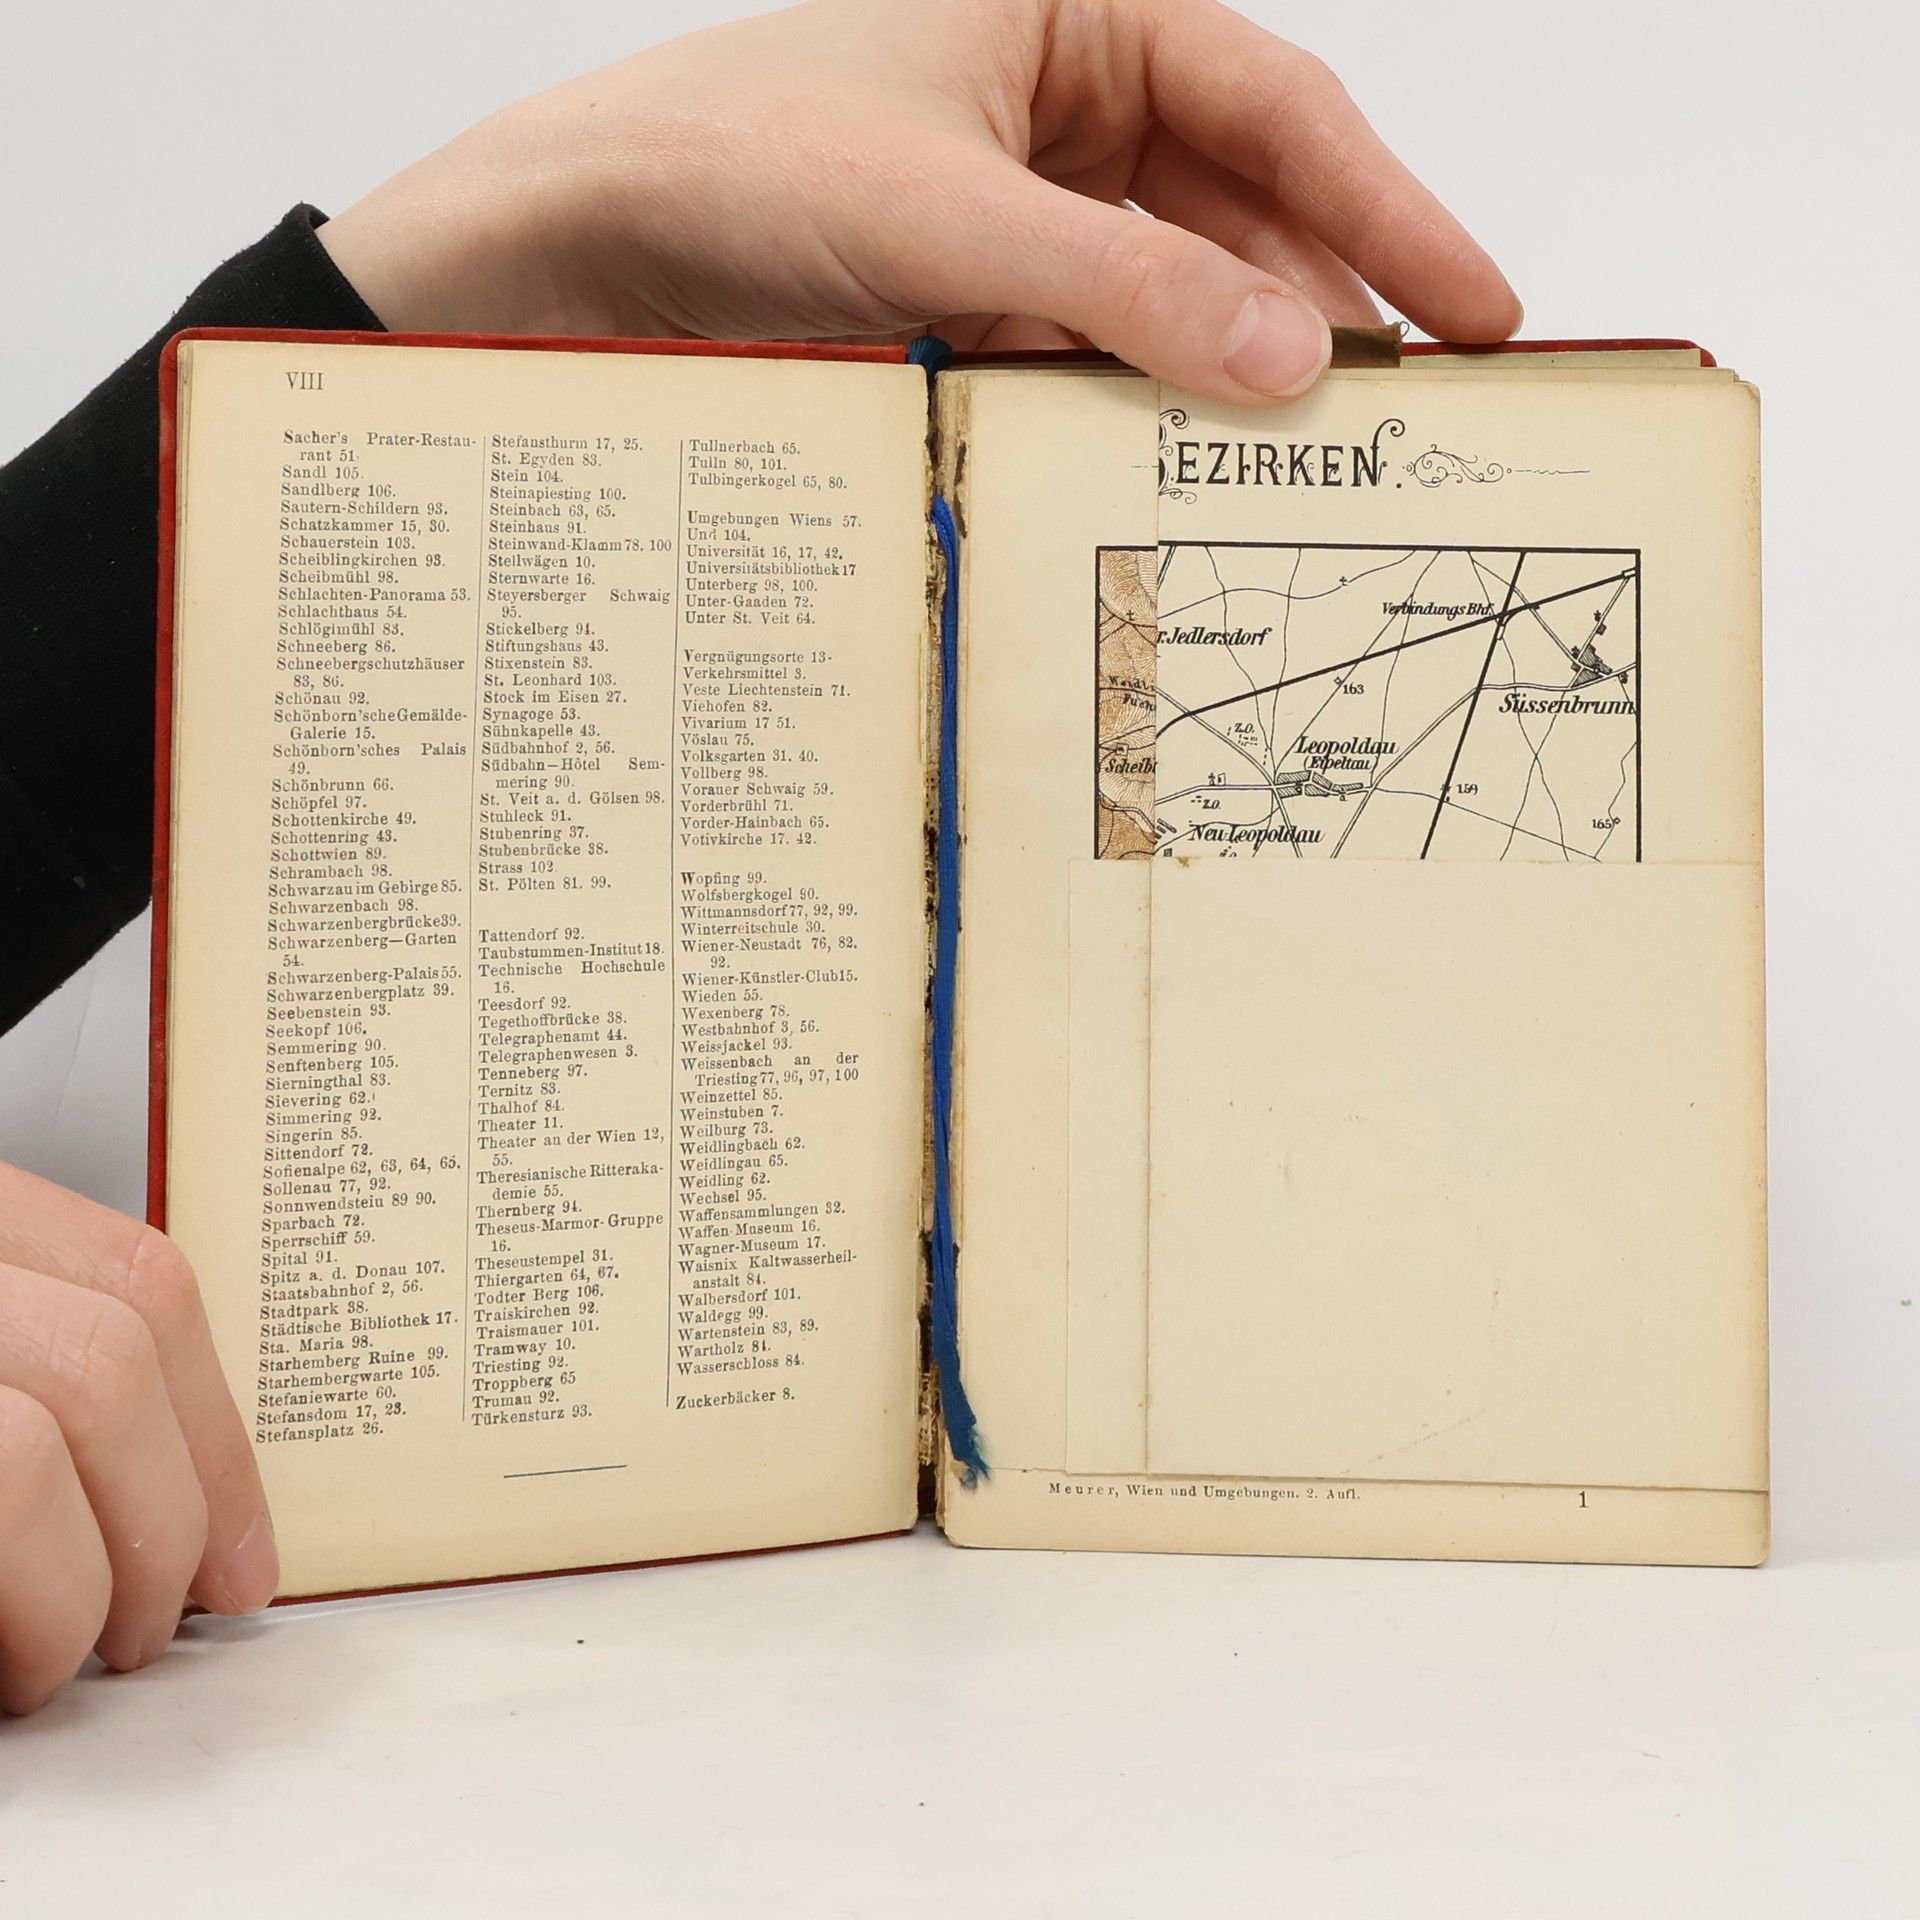 VIII
Sacher's Prater-Restau-
rant 51.
Sandl 105.
Sandlberg 106.
Sautern-Schildern 93.
Schatzkammer 15, 30.
Schauerstein 103.
Scheiblingkirchen 93.
Scheibmühl 98.
Schlachten-Panorama 53.
Schlachthaus 54.
Schlöglmühl 83.
Schneeberg 86.
Schneebergschutzhäuser
83, 86.
Schönau 92.
Schönborn'sche Gemälde-
Galerie 15.
Schönborn'sches Palais
49.
Schönbrunn 66.
Schöpfel 97.
Schottenkirche 49.
Schottenring 43.
Schottwien 89.
Schrambach 98.
Schwarzau im Gebirge 85.
Schwarzenbach 98.
Schwarzenbergbrücke 39.
Schwarzenberg—Garten
54.
Schwarzenberg-Palais 55.
Schwarzenbergplatz 39.
Seebenstein 93.
Seekopf 106.
Semmering 90.
Senftenberg 105.
Sierningthal 83.
Sievering 62.
Simmering 92.
Singerin 85.
Sittendorf 72.
Sofienalpe 62, 63, 64, 65.
Sollenau 77, 92.
Sonnwendstein 89 90.
Sparbach 72.
Sperrschiff 59.
Spital 91.
Spitz a. d. Donau 107.
Staatsbahnhof 2, 56.
Stadtpark 38.
Städtische Bibliothek 17.
Sta. Maria 98.
Starhemberg Ruine 99.
Starhembergwarte 105.
Stefaniewarte 60.
Stefansdom 17, 23.
Stefansplatz 26.
Stefansthurm 17, 25.
St. Egyden 83.
Stein 104.
Steinapiesting 100.
Steinbach 63, 65.
Steinhaus 91.
Steinwand-Klamm 78. 100
Stellwägen 10.
Sternwarte 16.
Steyersberger Schwaig
95.
Stickelberg 94.
Stiftungshaus 43.
Stixenstein 83.
St. Leonhard 103.
Stock im Eisen 27.
Synagoge 53.
Sühnkapelle 43.
Südbahnhof 2, 56.
Südbahn—Hôtel Sem-
mering 90.
St. Veit a. d. Gölsen 98.
Stuhleck 91.
Stubenring 37.
Stubenbrücke 38.
Strass 102.
St. Pölten 81. 99.
Tattendorf 92.
Taubstummen-Institut 18.
Technische Hochschule
16.
Teesdorf 92.
Tegethoffbrücke 38.
Telegraphenamt 44.
Telegraphenwesen 3.
Tenneberg 97.
Ternitz 83.
Thalhof 84.
Theater 11.
Theater an der Wien 12,
55.
Theresianische Ritteraka-
demie 55.
Thernberg 94.
Theseus-Marmor-Gruppe
16.
Theseustempel 31.
Thiergarten 64, 67.
Todter Berg 106.
Traiskirchen 92.
Traismauer 101.
Tramway 10.
Triesting 92.
Troppberg 65
Trumau 92.
Türkensturz 93.
Tullnerbach 65.
Tulln 80, 101.
Tulbingerkogel 65, 80.
Umgebungen Wiens 57.
Und 104.
Universität 16, 17, 42.
Universitätsbibliothek 17
Unterberg 98, 100.
Unter-Gaaden 72.
Unter St. Veit 64.
Vergnügungsorte 13-
Verkehrsmittel 3.
Veste Liechtenstein 71.
Viehofen 82.
Vivarium 17 51.
Vöslau 75.
Volksgarten 31. 40.
Vollberg 98.
Vorauer Schwaig 59.
Vorderbrühl 71.
Vorder-Hainbach 65.
Votivkirche 17. 42.
Wopfing 99.
Wolfsbergkogel 90.
Wittmannsdorf 77, 92, 99.
Winterreitschule 30.
Wiener-Neustadt 76, 82.
92.
Wiener-Künstler-Club 15.
Wieden 55.
Wexenberg 78.
Westbahnhof 3, 56.
Weissjackel 93.
Weissenbach an der
Triesting 77, 96, 97, 100
Weinzettel 85.
Weinstuben 7.
Weilburg 73.
Weidlingbach 62.
Weidlingau 65.
Weidling 62.
Wechsel 95.
Waffensammlungen 32.
Waffen-Museum 16.
Wagner-Museum 17.
Waisnix Kaltwasserheil-
anstalt 84.
Walbersdorf 101.
Waldegg 99.
Wartenstein 83, 89.
Wartholz 84.
Wasserschloss 84.
Zuckerbäcker 8.
BEZIRKEN.
Verbindungs Bhf.
r. Jedlersdorf
163
Süssenbrunn
Z.O.
Leopoldau
(Eipeltau)
Scheibl
159
Z.O.
165
Neu Leopoldau
Meurer, Wien und Umgebungen. 2. Aufl.
1